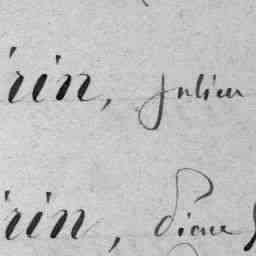 irin, Julien
irin, Pierre